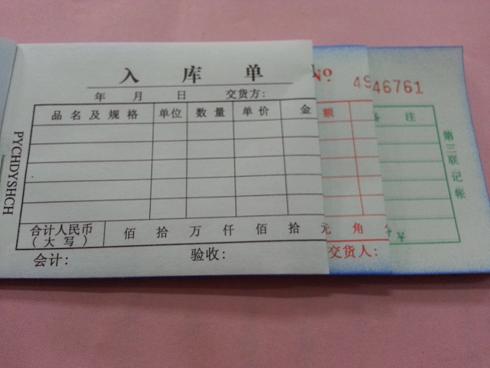 入库单 No 4946761
年 月 日 交货方:
品名及规格 单位 数量 单价 金 额 备注
合计人民币
(大写) 佰 拾 万 仟 佰 拾 元 角 ¥
会计: 验收: 交货人:
PYCHDYSHCH
第三联记帐